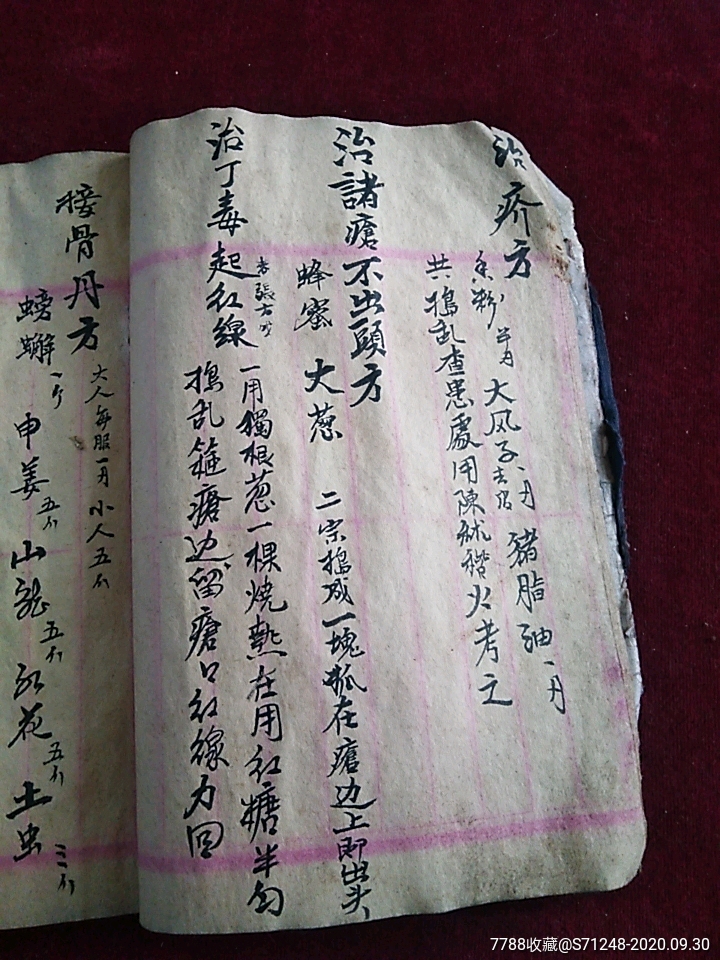 治疥方
大风子去 猪脂油一
共搗乱查患處用陳秫稭火考之
治諸瘡不出頭方
蜂蜜 大葱 二宗搗成一塊 在瘡边上即出头
治丁毒起红線
一用獨根葱一棵燒熱在用红糖半勺
搗乱箍瘡边留瘡口红線力回
接骨丹方
大人每服一 小人五分
螃蠏一个 申姜五分 山龙五分 红花五分 土虫三分
7788收藏@S71248-2020.09.30